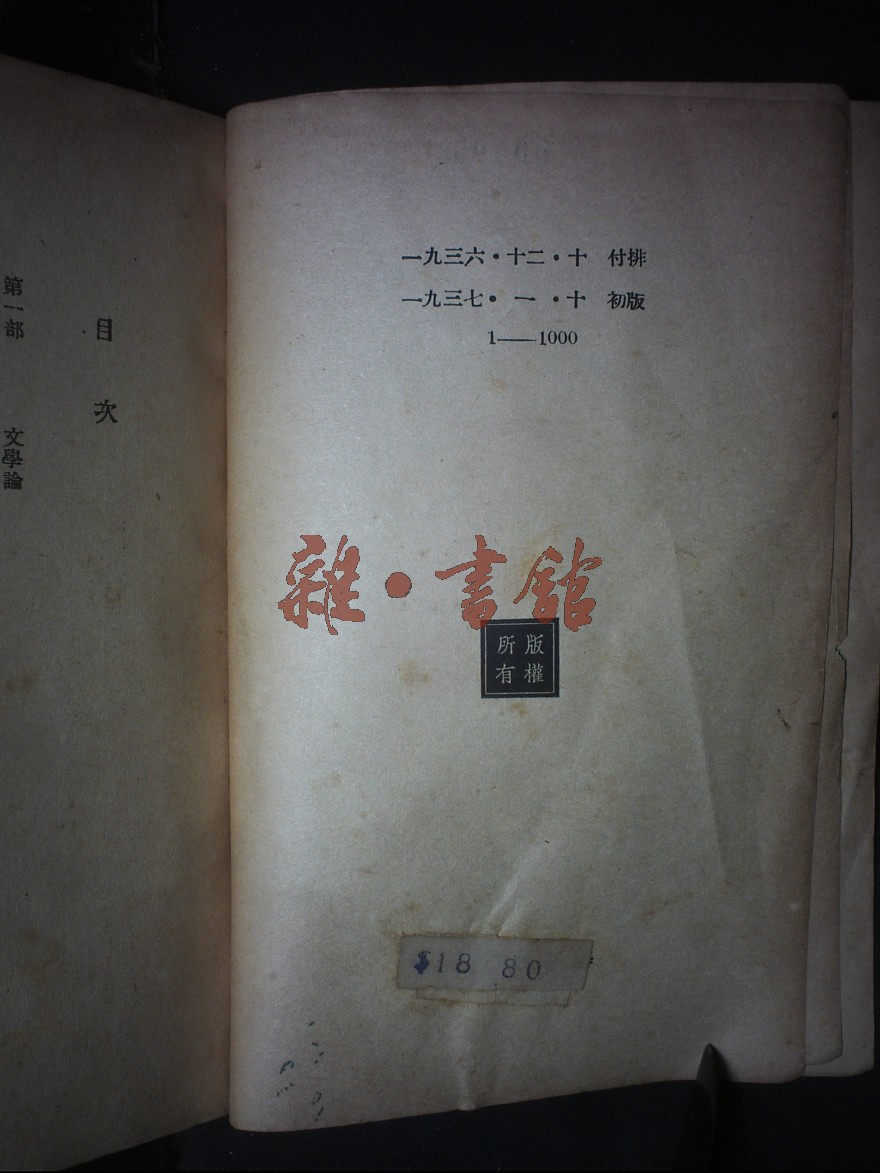 一九三六·十二·十 付排
一九三七·一·十 初版
1——1000
雜·書館
版權
所有
$18 80
目次
第一部 文學論